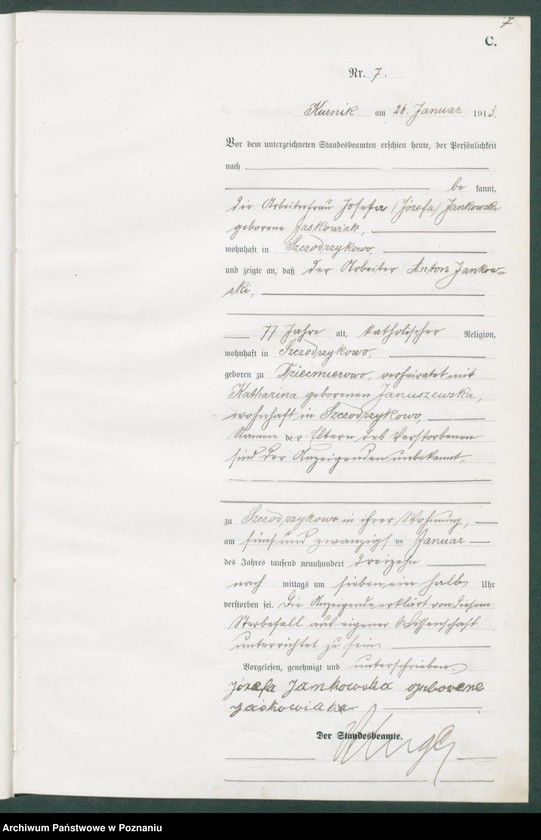 7
C.
Nr. 7.
Kurnik am 26. Januar 1913.
Vor dem unterzeichneten Standesbeamten erschien heute, der Persönlichkeit
nach
be kannt,
die Arbeiterfrau Josefa (Józefa) Jankowski
geborene Jaskowiak,
wohnhaft in Szczodrzykowo,
und zeigte an, daß der Arbeiter Anton Jankow-
ski,
77 Jahre alt, katholischer Religion,
wohnhaft in Szczodrzykowo,
geboren zu Dziecmierowo, verheiratet mit
Katharina geborenen Januszewska,
wohnhaft in Szczodrzykowo,
Namen der Eltern des Verstorbenen
sind der Anzeigenden unbekannt,
zu Szczodrzykowo in ihrer Wohnung,
am fünfundzwanzigsten Januar
des Jahres tausend neunhundert dreizehn
nach mittags um sieben ein halb Uhr
verstorben sei. Die Anzeigende erklärt von diesem
Sterbefall aus eigener Wissenschaft
unterrichtet zu sein.
Vorgelesen, genehmigt und unterschrieben.
Józefa Jankowska geborene
Jaskowiaka
Der Standesbeamte.
Archiwum Państwowe w Poznaniu